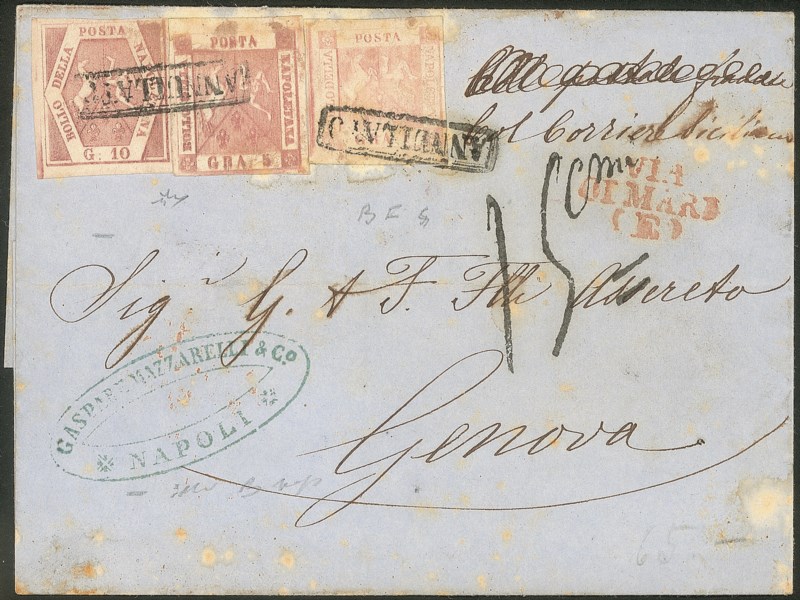 BOLLO DELLA POSTA NAPOLETANA
G: 10
ANNULLATO
BOLLO DELLA POSTA NAPOLETANA
GRA 5
BOLLO DELLA POSTA NAPOLETANA
ANNULLATO
Col Corriere Siciliano
VIA
DI MARE
(E)
15
Sigri G. & F. Flli Assereto
Genova
GASPARE MAZZARELLI & Co.
NAPOLI
65